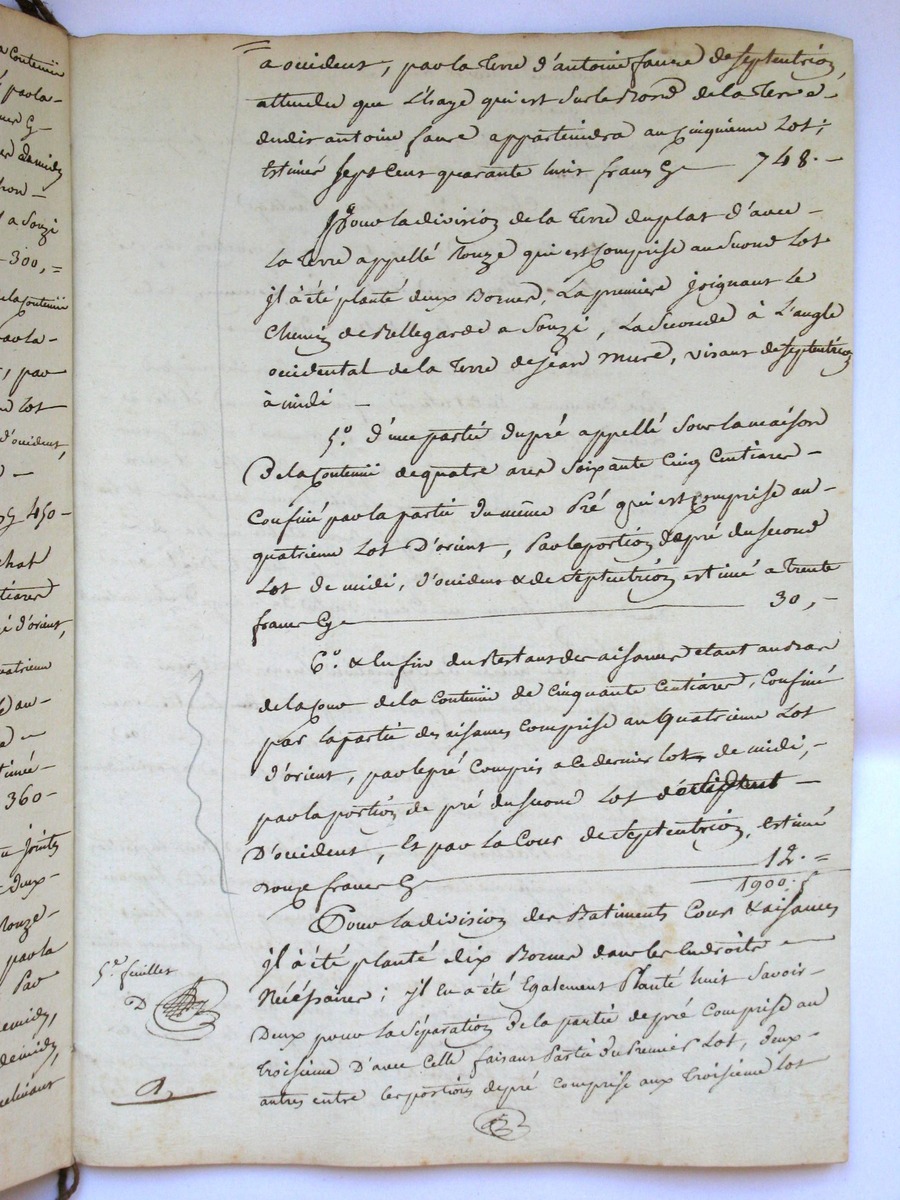 a occident, par la Terre d'antoine faure de septentrion,
attendu que L'haye qui est sur le Bord de la Terre
dudit antoine faure appartiendra au cinquieme Lot;
Estimée sept Cent quarante huit francs 748.
Pour la division de la Terre du plat d'avec
La Terre appellé Rouze qui est comprise au second Lot
jl à été planté deux Bornes, La premiere joignant Le
Chemin de Bellegarde a Souzi, La seconde à L'angle
occidental de la Terre de jean Mure, visant de septentrion
à midi
5.o d'une partie du pré appellé sous la maison
De la Contenüe de quatre ares soixante Cinq Centiares
Confiné par la partie du même Pré qui est comprise au
quatrieme Lot D'orient, Par la portion de pré du second
Lot de midi, d'occident & de septentrion estimé a Trente
francs 30,
6.o & Enfin du Restant des aisances étant au bas
de la Cour de la Contenüe de Cinquante Centiares, Confiné
par la partie des aisances comprise au quatrieme Lot
d'orient, par le pré Compris a ce dernier lot de midi,
par la portion de pré du second Lot
D'occident, Et par La Cour de septentrion, Estimé
Douze francs 12.
1900.
Pour la division des Batiments Cour & aisances
jl à été planté dix Bornes dans les Endroits
Nécéssaires; jl en a été Egalement Planté huit savoir
Deux pour la séparation de la partie de pré Comprise au
Troisieme D'avec Celle faisant Partie du Premier Lot, deux
autres entre les portions de pré comprise aux Troisieme Lot
5.e feuillet
D
a Contenüe
par la
de midy
a Souzi
300,
de la Contenüe
par la
, par
Lot
d'occident,
450
tiares
d'orient,
quatrieme
au
timée
360
joints
deux
Rouze
par la
Par
de midy,
de midy,